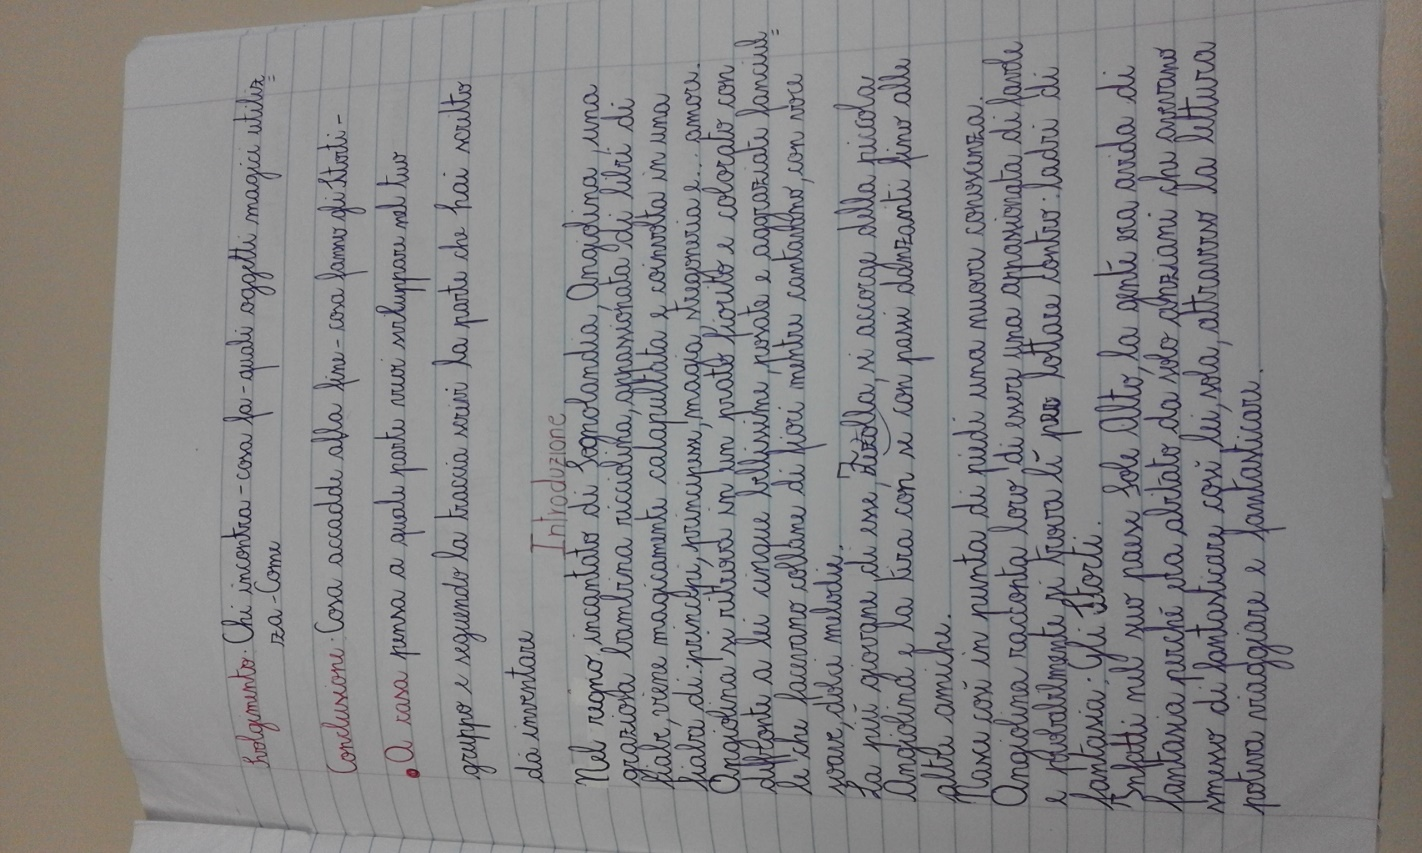 Svolgimento: Chi incontra - cosa fa - quali oggetti magici utiliz=
za - Come
Conclusione: Cosa accadde alla fine - cosa fanno gli Storti -
• A casa pensa a quale parte vuoi sviluppare nel tuo
gruppo e seguendo la traccia scrivi la parte che hai scelto
da inventare
Introduzione
Nel regno incantato di Sognolandia Angiolina, una
graziosa bambina ricciolina, appassionata di libri di
fiabe, viene magicamente catapultata e coinvolta in una
fiaba di principi, principesse, magia, stregoneria e... amore.
Angiolina si ritrova in un prato fiorito e colorato con
di fronte a lei cinque bellissime, posate e aggraziate fanciul=
le che facevano collane di fiori mentre cantavano, con voce
soave, dolci melodie.
La più giovane di esse, Fizolla, si accorge della piccola
Angiolina e la tira con sé con passi danzanti fino alle
altre amiche.
Nasce così in punta di piedi una nuova conoscenza.
Angiolina racconta loro di essere una appassionata di favole
e probabilmente si trova lì per lottare contro i ladri di
fantasia: Gli Storti.
Infatti nel suo paese Sole Alto, la gente era arida di
fantasia perché era abitato da solo anziani che avevano
smesso di fantasticare così lei, sola, attraverso la lettura
poteva viaggiare e fantasticare.